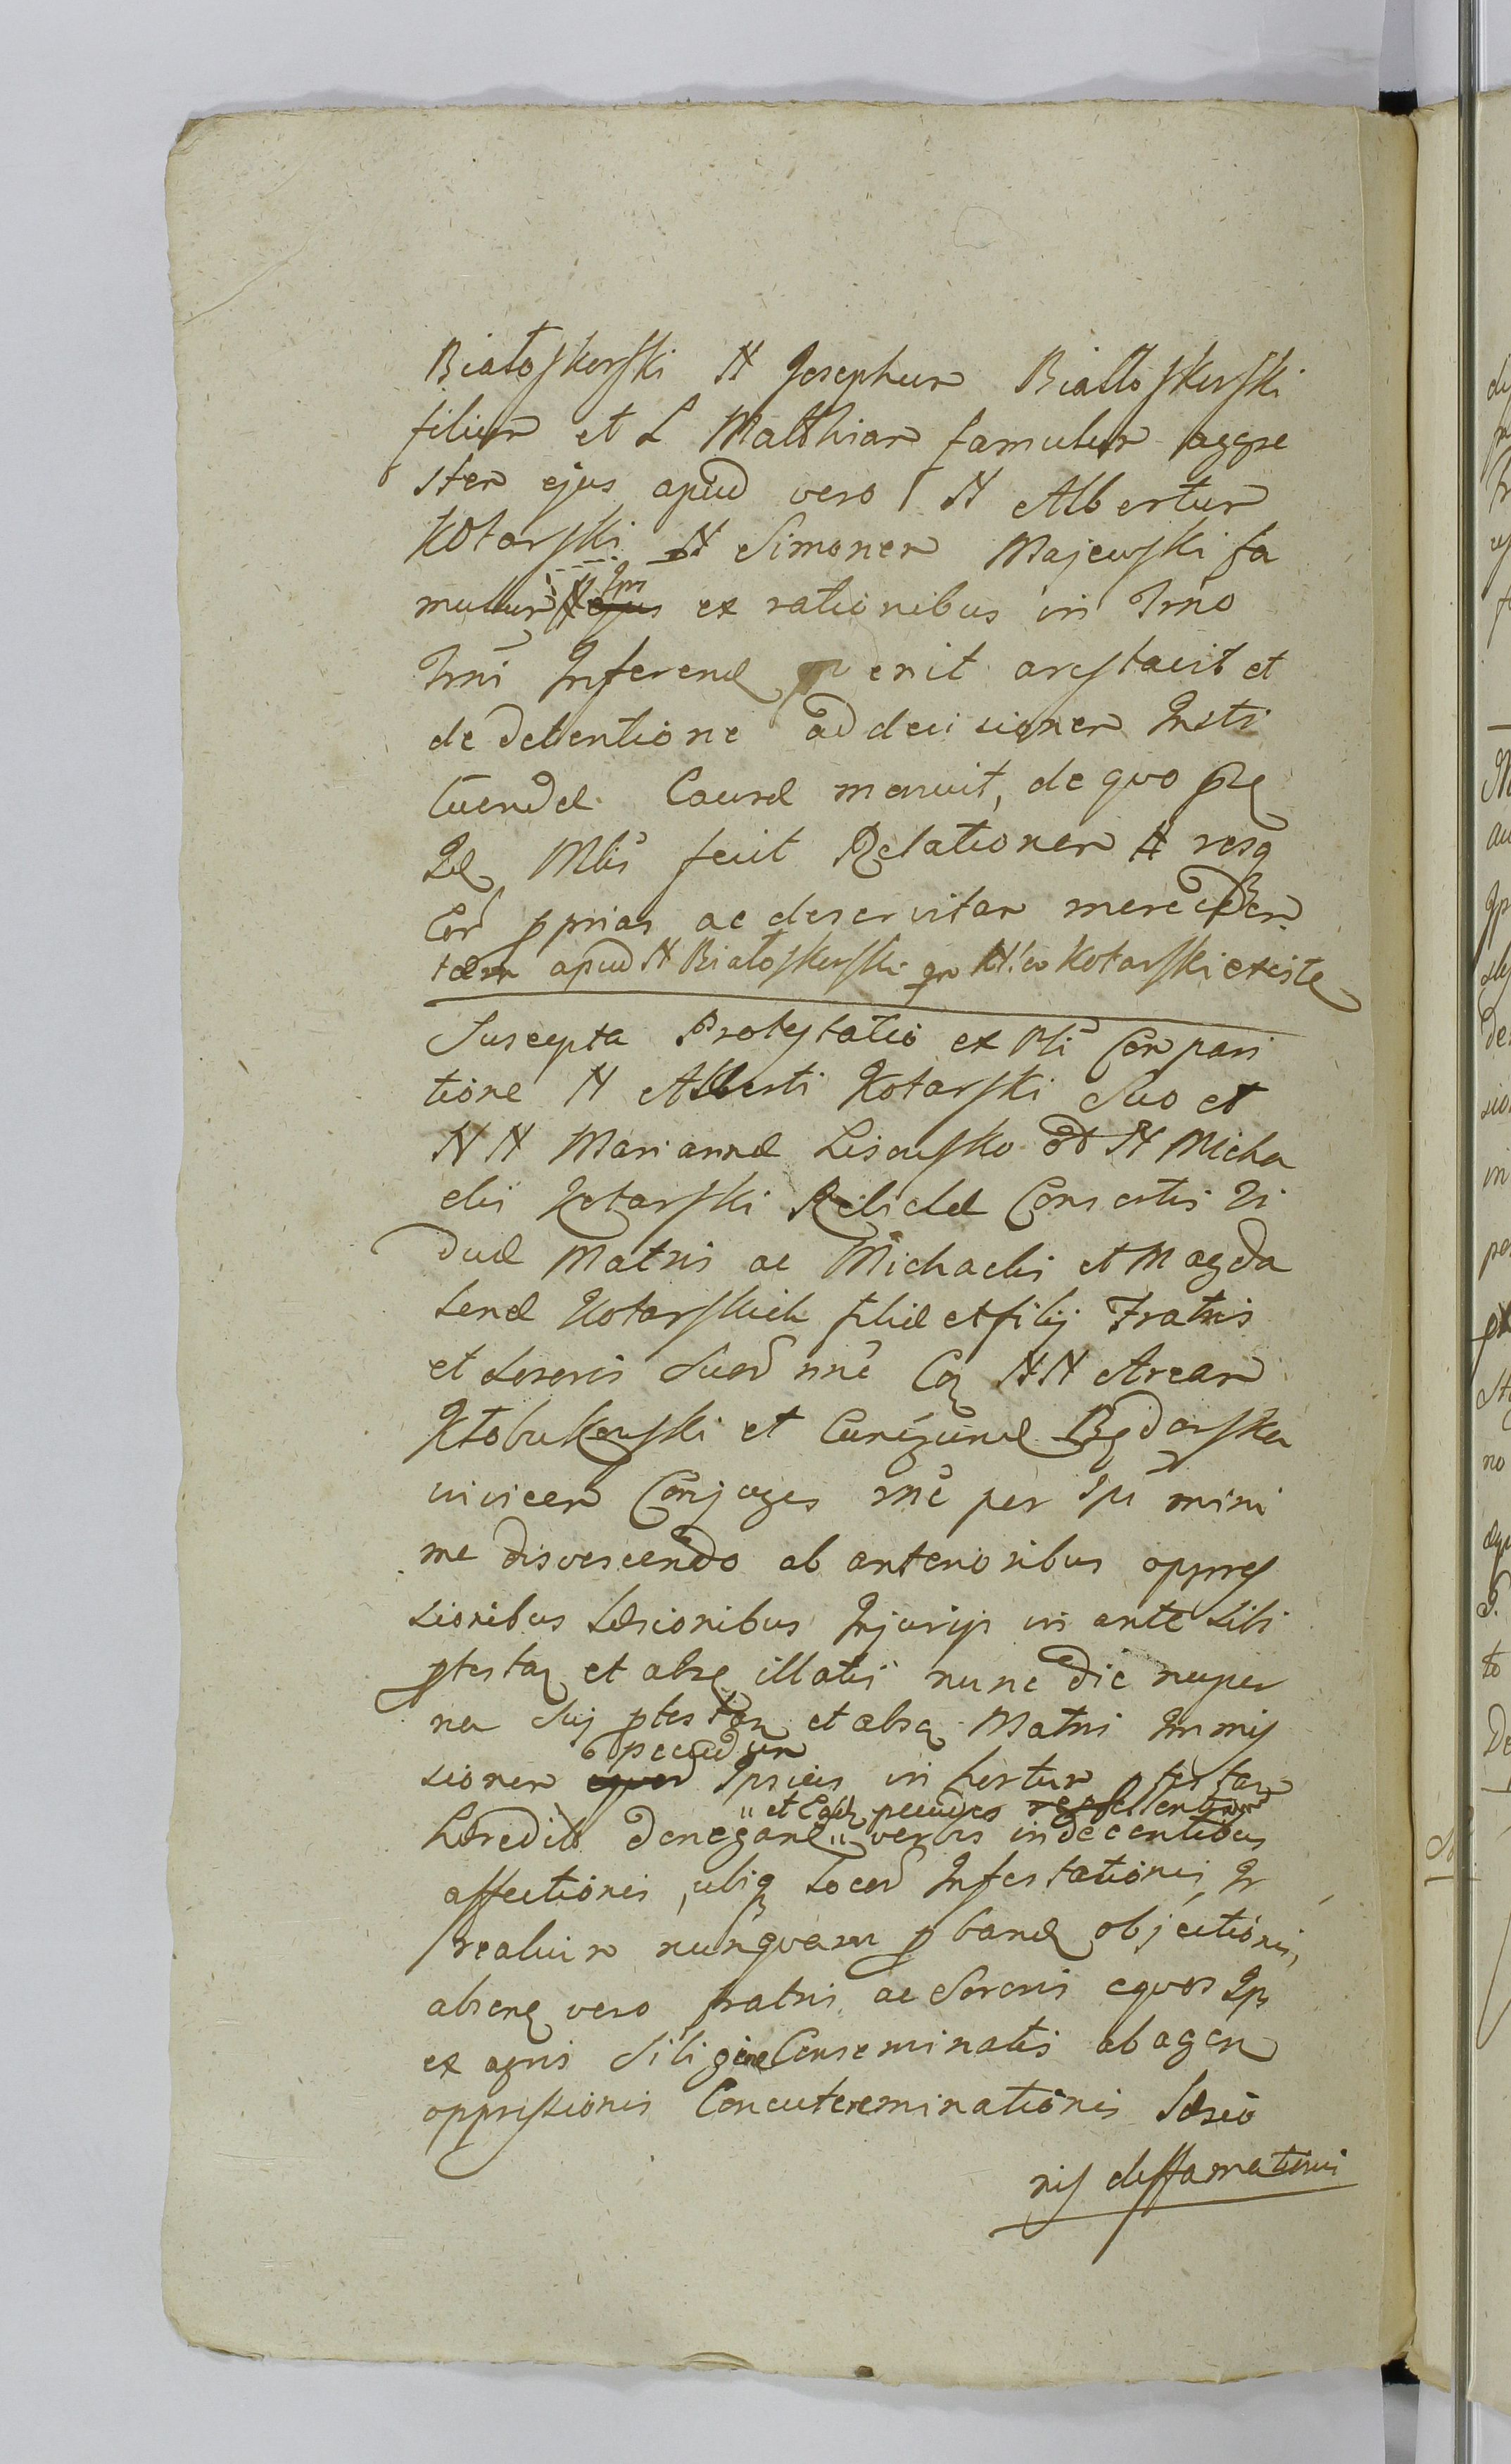 Białoskorski N Josephum Białłoskorski
filium et L Matthiam famulum agge
stem ejus apud vero N Albertum
Kotarski N Simonem Majewski fa
mulum Ipsi ejus ex rationibus in Trmo
Trmi Inferend perit arestavit et
de detentione ad decisionem Insti
tuendæ Causæ monuit, de quo præ
Mlis fecit Relationem N resq
Eor pprias ac deservitam mercedem
tam apud N Białoskorski qm N. eo Kotarski existe
Suscepta Protestatio ex Oli Compari
tione N Alberti Kotarski Suo et
N N Mariannæ Lisowsko N Micha
elis Kotarski Relictæ Consortis Vi
duæ Matris ac Michaelis et Magda
lenæ Kotarskich filiæ et filij Fratris
et Sororis Suor nne Coq NN Arcam
Kłobukowski et Cunegundæ Będorska
invicem Conjuges nne per Ipsi mini
me disvescendo ab anterioribus oppres
sionibus Læsionibus Injurijs in ante Sibi
ptestaq et absq illatis nunc die nuper
na Suj ptestan et absq Matri Immis
sionem equor pecudum Ipsius in hortum ptestan
Hæredit denegare et Eosdem pecudes repellentium verbis indecentibus
affectionis, ubiq locor Infestationis, Ir
realium nunquam pband objectionis,
absenq vero fratris ac Sororis equos Ips
ex agris Siligine Conseminatis abagen
oppressionis Concutereminationis Læsio
nis deffamationis